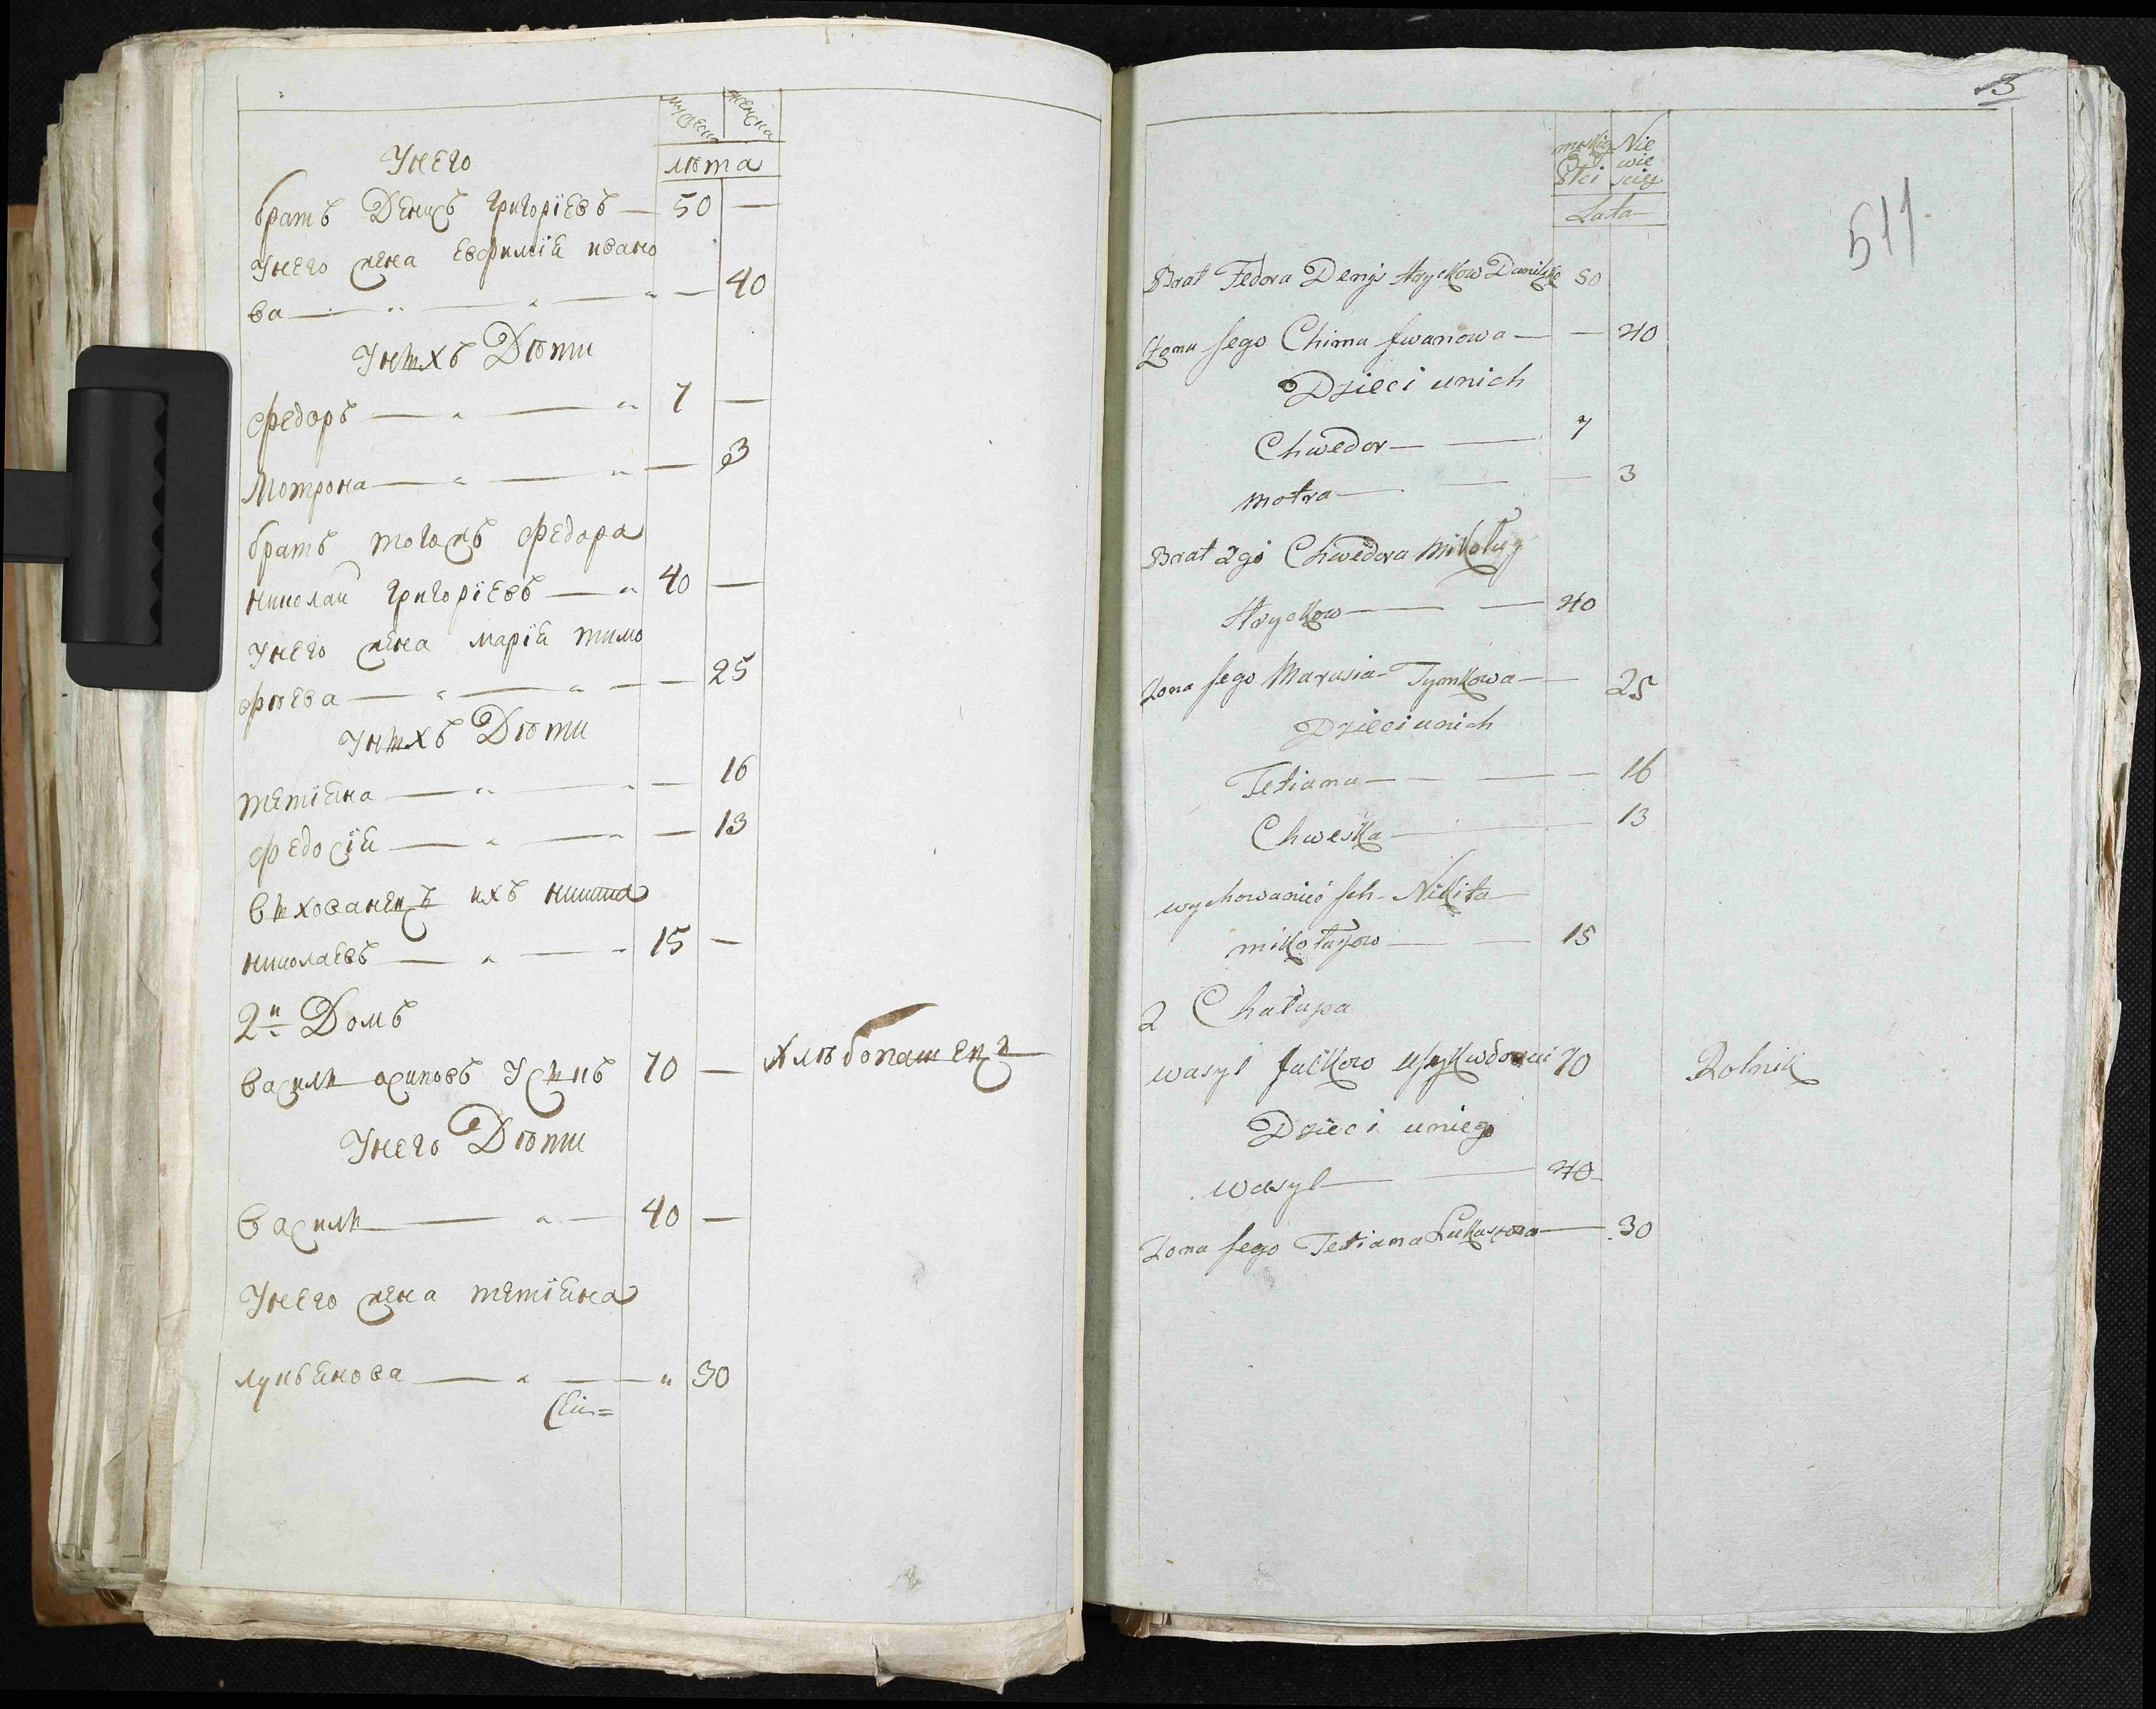 мужеска женска
лѣта
Унего
братъ Денисъ Григорїевъ — 50 —
Унего жена Евфимїя ивано
ва — 40
Унихъ Дѣти
Федоръ — 7 —
Мотрона — 3
братъ тогожъ Федора
николай Григорїевъ — 40 —
Унего жена марїя тимо
фѣева — 25
Унихъ Дѣти
Тетїяна — 16
Федосїя — 13
выхованецъ ихъ никита
николаевъ — 15 —
2й Домъ
василы осиповъ 70 — Хлѣбопашецъ
Унего Дѣти
василы — 40 —
Унего жена тетїяна
лукьянова — 30
13
511
męskiey Nie
wie
Stci sciey
Lata
Brat Fedora Denys Hryckow 50
Zona Jego Chima Jwanowa — — 40
Dzieci unich
Chwedor — — 7
Motra — — — 3
Brat 2gi Chwedora Mikołay
Hryckow — — 40
Zona Jego Marusia Tymkowa — 25
Dzieci unich
Tetiana — — — 16
Chweska — 13
wychowaniec Ich Nikita
mikołajow — — 15
2 Chałupa
Wasyl 70 Rolnik
Dzieci uniego
Wasyl — 40
Zona Jego Tetiana Lukaszowa — 30